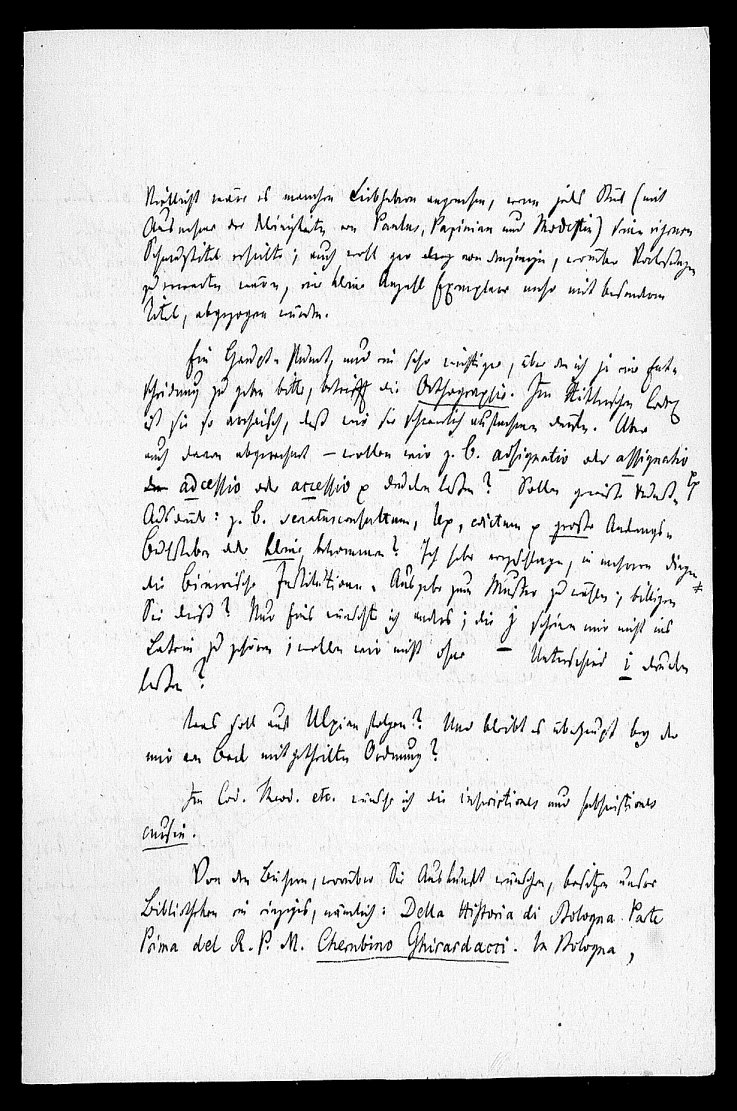 Vielleicht wäre es manchen Liebhabern angenehm, wenn jedes Stück (mit
Ausnahme der von Paulus, Papinian und Modestin) seinen eigenen
Schmutztitel erhielte; auch wohl gar von denjenigen, worüber Vorlesungen
zu erwarten wären, eine kleine Anzahl Exemplare mehr mit besonderem
Titel, abgezogen würden.
Ein Haupt-Punct, und ein sehr wichtiger, über den ich ja eine Ent-
scheidung zu geben bitte, betrifft die Orthographie. Im Codex
ist sie so archaisch, daß wir sie schwerlich aufnehmen dürfen. Aber
auch davon abgesehen – wollen wir z. B. adsignatio oder assignatio
adcessio oder accessio drucken lassen? Sollen gewisse Kunst-
Ausdrücke: z. B. senatusconsultum, lex, edictum große Anfangs-
buchstaben oder kleine bekommen? Ich habe vorgeschlagen, in mehreren Dingen
die Bienersche Institutionen-Ausgabe zum Muster zu nehmen; billigen
Sie dieß? Nur Eins wünscht ich anders; die j scheinen mir nicht ins
Latein zu gehören; wollen wir nicht ohne Unterschied i drucken
lassen?
Was soll auf Ulpian folgen? Und bleibt es überhaupt bey der
mir von Beck mitgetheilten Ordnung?
Im Cod. Theod. etc. wünsche ich die inscriptiones und subscriptiones
cursiv.
Von den Büchern, worüber Sie Auskunft wünschen, besitzen unsere
Bibliotheken ein einziges, nämlich: Della Historia di Bologna Parte
Prima del R. P. M. Cherubino Ghirardacci. In Bologna,